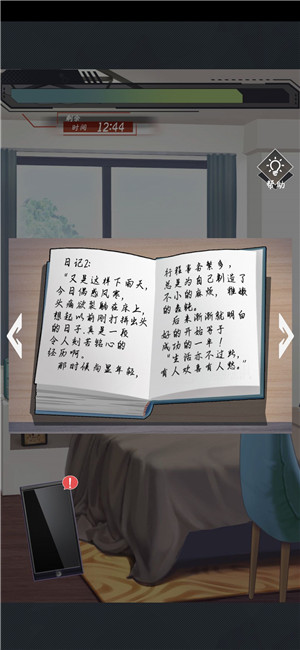 剩余
时间 12:44
帮助
日记2:
“又是这样下雨天,
今日偶感风寒,
头痛欲裂躺在床上,
想起以前刚打拼出头
的日子,真是一段
令人刻苦铭心的
经历啊。
那时候尚显年轻,
行程事务繁多,
总是为自己制造了
不小的麻烦,稚嫩
的轰轰。
后来渐渐就明白
好的开始等于
成功的一半!
“生活亦不过热,
有人欢喜有人愁。”